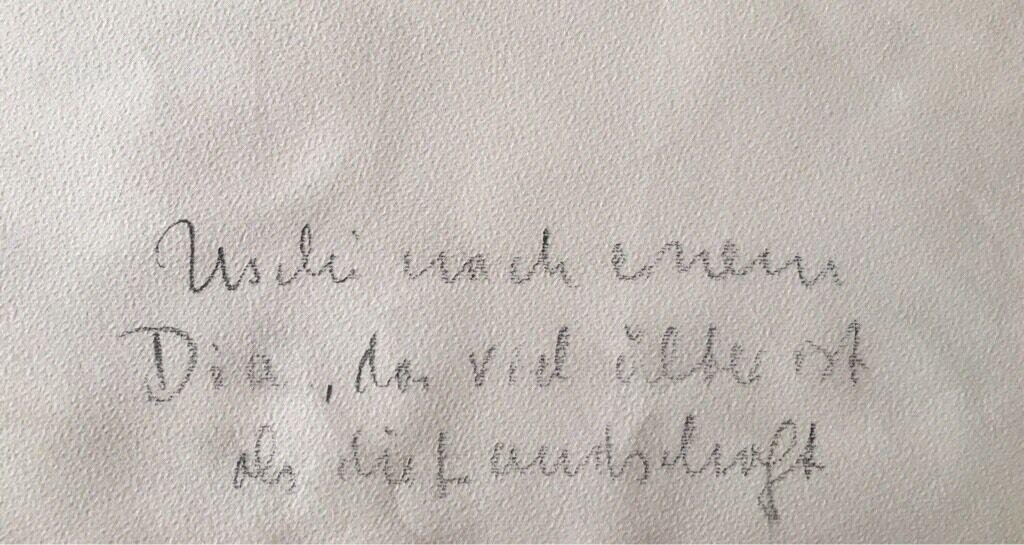 Uschi nach einem
Dia, das viel älter ist
als die Landschaft